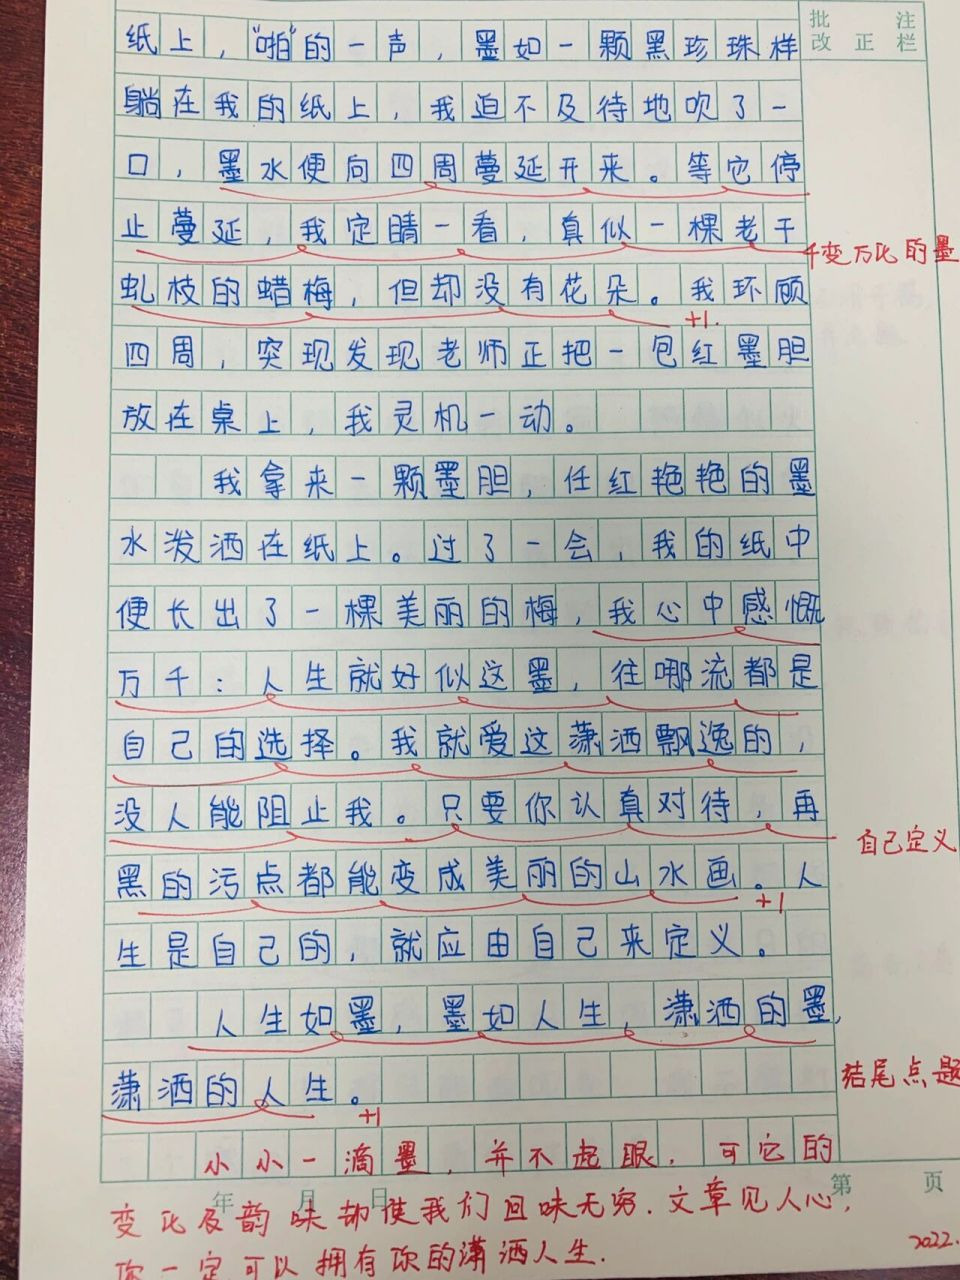 批 注
改 正 栏
纸上，“啪”的一声，墨如一颗黑珍珠样
躺在我的纸上，我迫不及待地吹了一
口，墨水便向四周蔓延开来。等它停
止蔓延，我定睛一看，真似一棵老干
千变万化的墨
虬枝的蜡梅，但却没有花朵。我环顾
+1.
四周，突现发现老师正把一包红墨胆
放在桌上，我灵机一动。
我拿来一颗墨胆，任红艳艳的墨
水泼洒在纸上。过了一会，我的纸中
便长出了一棵美丽的梅，我心中感慨
万千：人生就好似这墨，往哪流都是
自己的选择。我就爱这潇洒飘逸的，
没人能阻止我。只要你认真对待，再
自己定义
黑的污点都能变成美丽的山水画。人
+1
生是自己的，就应由自己来定义。
人生如墨，墨如人生，潇洒的墨，
潇洒的人生。
结尾点题
+1
小小一滴墨，并不起眼，可它的
年 月 日 第 页
变化及韵味却使我们回味无穷.文章见人心，
你一定可以拥有你的潇洒人生.
2022.